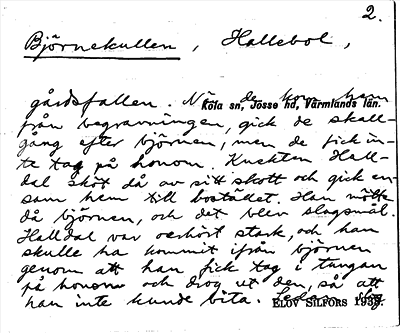 2.
Björnekullen, Hallebol,
gårdsfallen. När de kom hem
Köla sn, Jösse hd, Värmlands län.
från begravningen, gick de skall-
gång efter björnen, men de fick in-
te tag på honom. Knekten Hall-
dal sköt då av sitt skott och gick en-
sam hem till bostället. Han mötte
då björnen, och det blev slagsmål.
Halldal var oerhört stark, och han
skulle ha kommit ifrån björnen
genom att han fick tag i tungan
på honom och drog ut den, så att
han inte kunde bita.
ELOV SILFORS 1939.